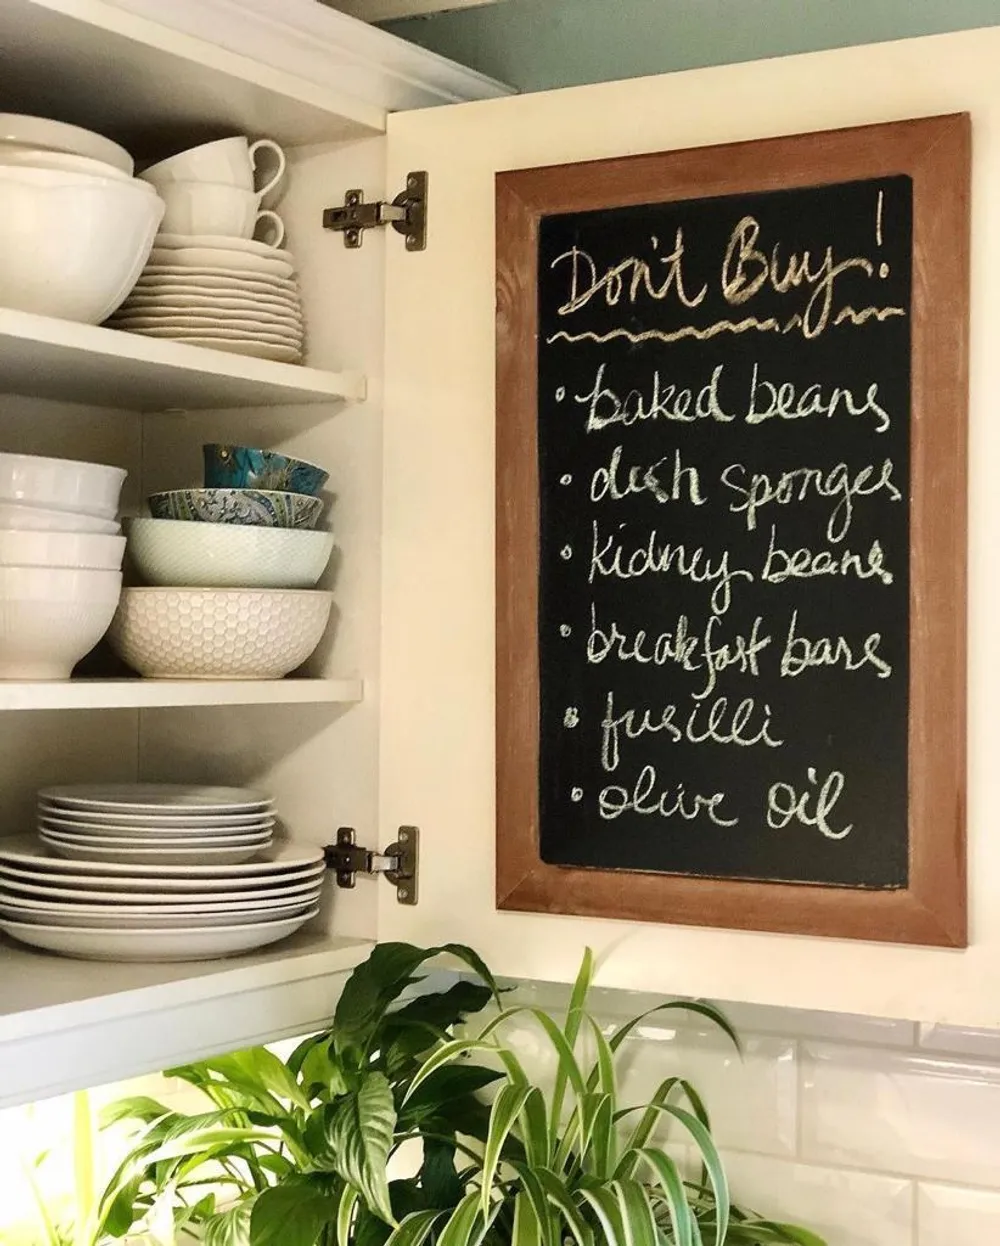 Don't Buy!
• baked beans
• dish sponges
• kidney beans
• breakfast bars
• fusilli
• olive oil